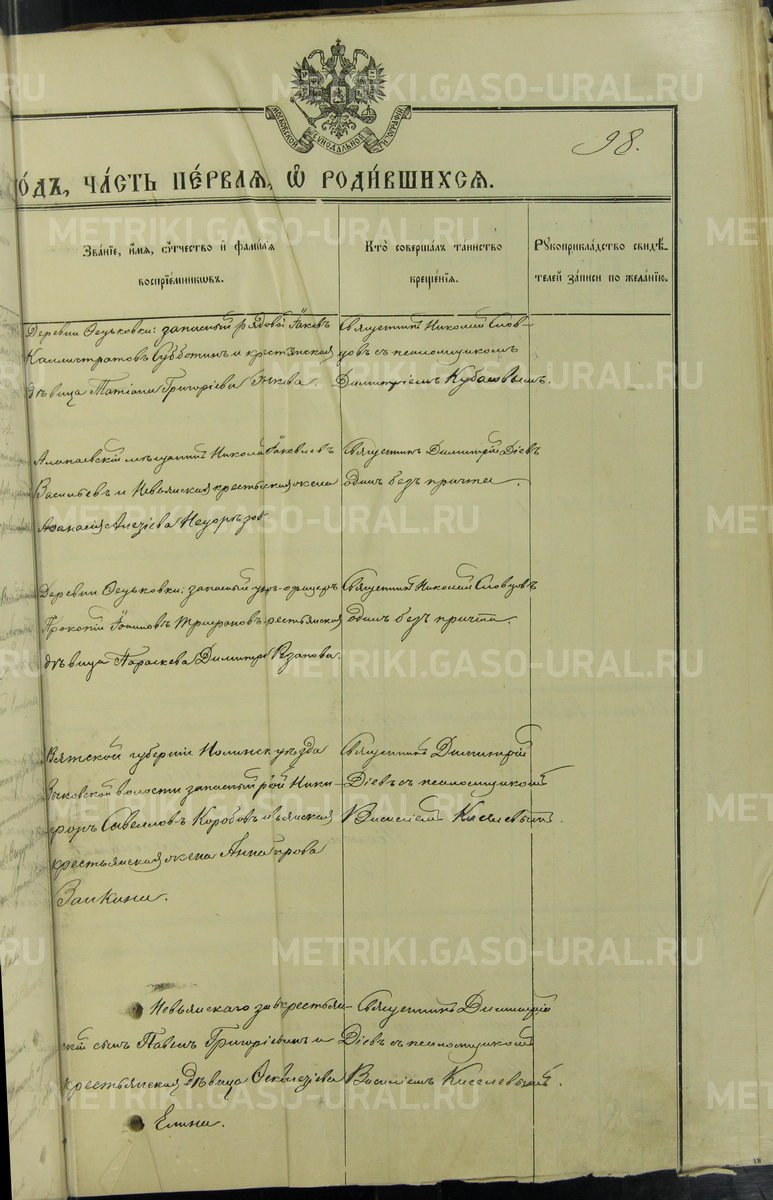 METRIKI.GASO-URAL.RU
МОСКОВСКОЙ СѴНОДАЛЬНОЙ ТИПОГРАФІИ
98.
ОДЪ, ЧАСТЬ ПЕРВАЯ, Ѡ РОДИВШИХСЯ.
Званіе, имя, отчество и фамилія
воспріемниковъ.
Кто совершалъ таинство
крещенія.
Рукоприкладство свидѣ-
телей записи по желанію.
Деревни Ѳедьковки: запасный рядовой Іаковъ
Каллистратовъ Субботинъ и крестьянская
дѣвица Татіана Григоріева
Священникъ Николай Слов-
цовъ съ псаломщикомъ
Димитріемъ Кубасовымъ.
Алапаевскій мѣщанинъ Николай Іаковлевъ
Васильевъ и Невьянская крестьянская жена
Аѳанасія
Священникъ Димитрій Діевъ
одинъ безъ причта.
Деревни Ѳедьковки: запасный унт-офицеръ
Прокопій Трифановъ
дѣвица Параскева Рязанова.
Священникъ Николай Словцовъ
одинъ безъ причта.
Вятской губерніи Нолинск уѣзда
Зыковской волости запасный Ники-
форъ Савелловъ Коробовъ
крестьянская жена Анна
Заикина.
Священникъ Димитрій
Діевъ съ псаломщикомъ
Василіемъ Киселевымъ.
Невьянскаго зав крестьян-
скій сынъ Павелъ Григоріевъ и
крестьянская дѣвица
Елина.
Священникъ Димитрій
Діевъ съ псаломщикомъ
Василіемъ Киселевымъ.